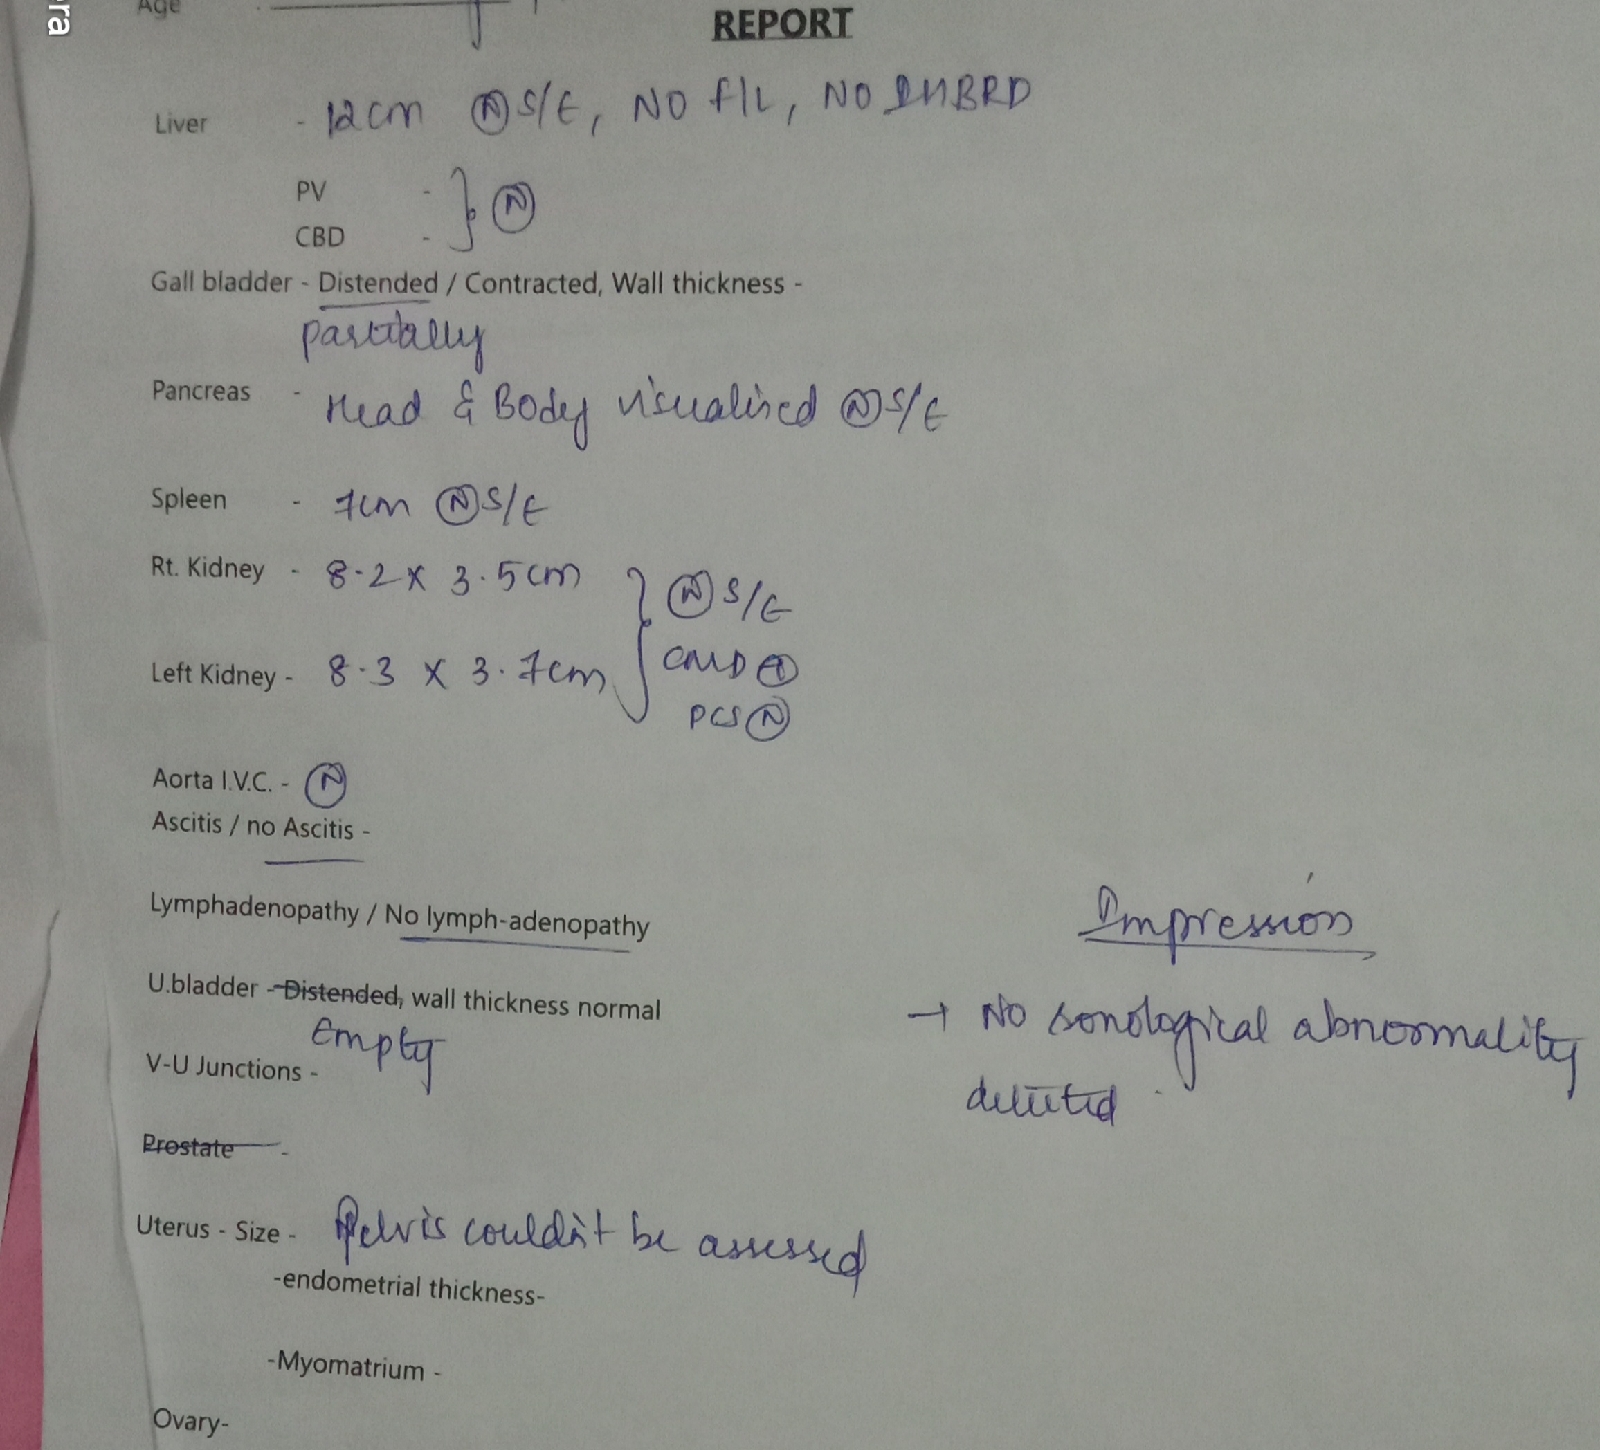 ra
Age
REPORT
Liver - 12cm Ⓝ S/E, NO f/L, NO IHBRD
PV -
CBD - } Ⓝ
Gall bladder - Distended / Contracted, Wall thickness -
partially
Pancreas - Head & Body visualised Ⓝ S/E
Spleen - 7cm Ⓝ S/E
Rt. Kidney - 8.2 x 3.5cm } Ⓝ S/E
Left Kidney - 8.3 x 3.7cm CMD
PCS Ⓝ
Aorta I.V.C. - Ⓝ
Ascitis / no Ascitis -
Lymphadenopathy / No lymph-adenopathy
U.bladder - Distended, wall thickness normal
Empty
V-U Junctions -
Prostate -
Uterus - Size - Pelvis couldn't be assessed
-endometrial thickness-
-Myomatrium -
Ovary-
Impression
→ No sonological abnormality
detected